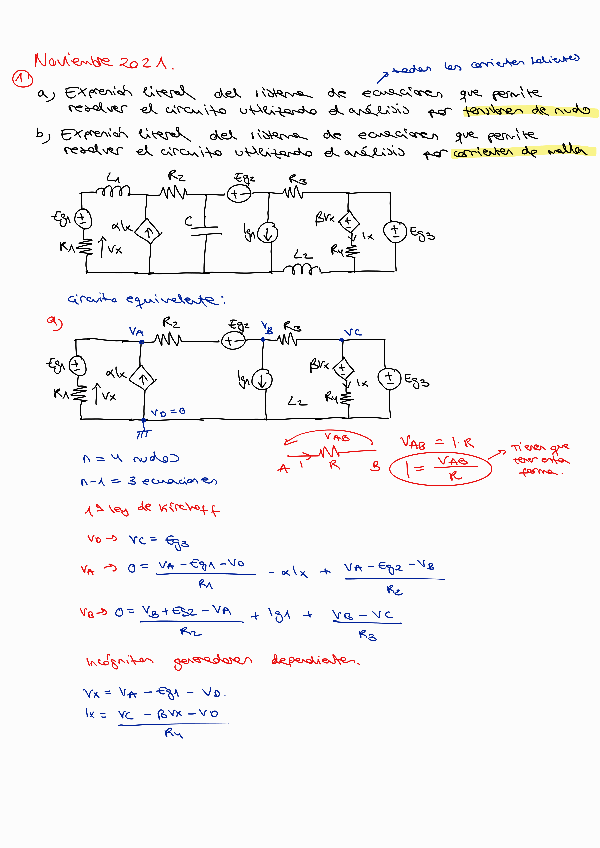 Noviembre 2021.
todas las corrientes salientes
1
a) Expresión literal del sistema de ecuaciones que permite
resolver el circuito utilizando el análisis por tensiones de nudo
b) Expresión literal del sistema de ecuaciones que permite
resolver el circuito utilizando el análisis por corrientes de malla
L1 R2 Eg2 R3
Eg1 αIx C Ig1 βVx Ix Eg3
R1 Vx R4
L2
Circuito equivalente:
a)
VA R2 Eg2 VB R3 VC
Eg1 αIx Ig1 βVx Ix Eg3
R1 Vx L2 R4
VD=0
n = 4 nudos
n-1 = 3 ecuaciones
VAB
A I R B
VAB = I·R
I = VAB / R
Tienen que
tener esta
forma.
1ª ley de Kirchoff
VD → VC = Eg3
VA → 0 = VA - Eg1 - VD / R1 - αIx + VA - Eg2 - VB / R2
VB → 0 = VB + Eg2 - VA / R2 + Ig1 + VB - VC / R3
Incógnitas generadores dependientes.
Vx = VA - Eg1 - VD.
Ix = VC - βVx - VD / R4